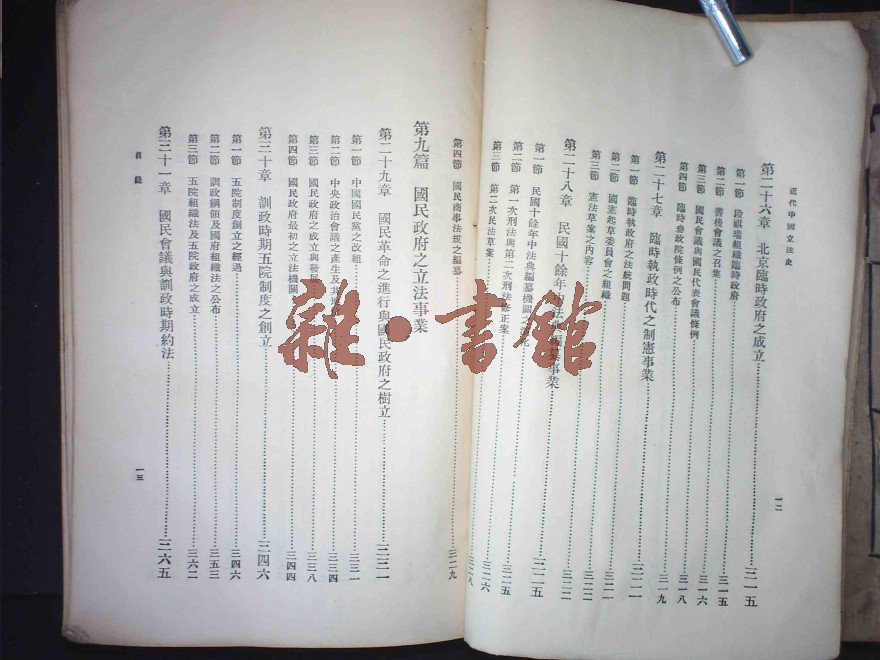 近代中國立法史
一二
第二十六章　北京臨時政府之成立…………三一五
第一節　段祺瑞組織臨時政府…………三一五
第二節　善後會議之召集…………三一五
第三節　國民會議與國民代表會議條例…………三一六
第四節　臨時參政院條例之公布…………三一八
第二十七章　臨時執政時代之制憲事業…………三一九
第一節　臨時執政府之法統問題…………
第二節　國憲起草委員會之組織…………三二一
第三節　憲法草案之內容…………三二二
第二十八章　民國十餘年中法典編纂事業…………三二二
第一節　民國十餘年中法典編纂機關之…………三二五
第二節　第一次刑法與第二次刑法修正案…………三二五
第三節　第二次民法草案…………三二六
第四節　國民商事法規之編纂…………三二九
第九篇　國民政府之立法事業
第二十九章　國民革命之進行與國民政府之樹立…………三三一
第一節　中國國民黨之改組…………三三一
第二節　中央政治會議之產生及其…………三三四
第三節　國民政府之成立與發展…………三三八
第四節　國民政府最初之立法機關…………三四四
第三十章　訓政時期五院制度之創立…………三四六
第一節　五院制度創立之經過…………三四六
第二節　訓政綱領及國府組織法之公布…………三五三
第三節　五院組織法及五院政府之成立…………三六二
第三十一章　國民會議與訓政時期約法…………三六五
目錄
一三
雜·書館